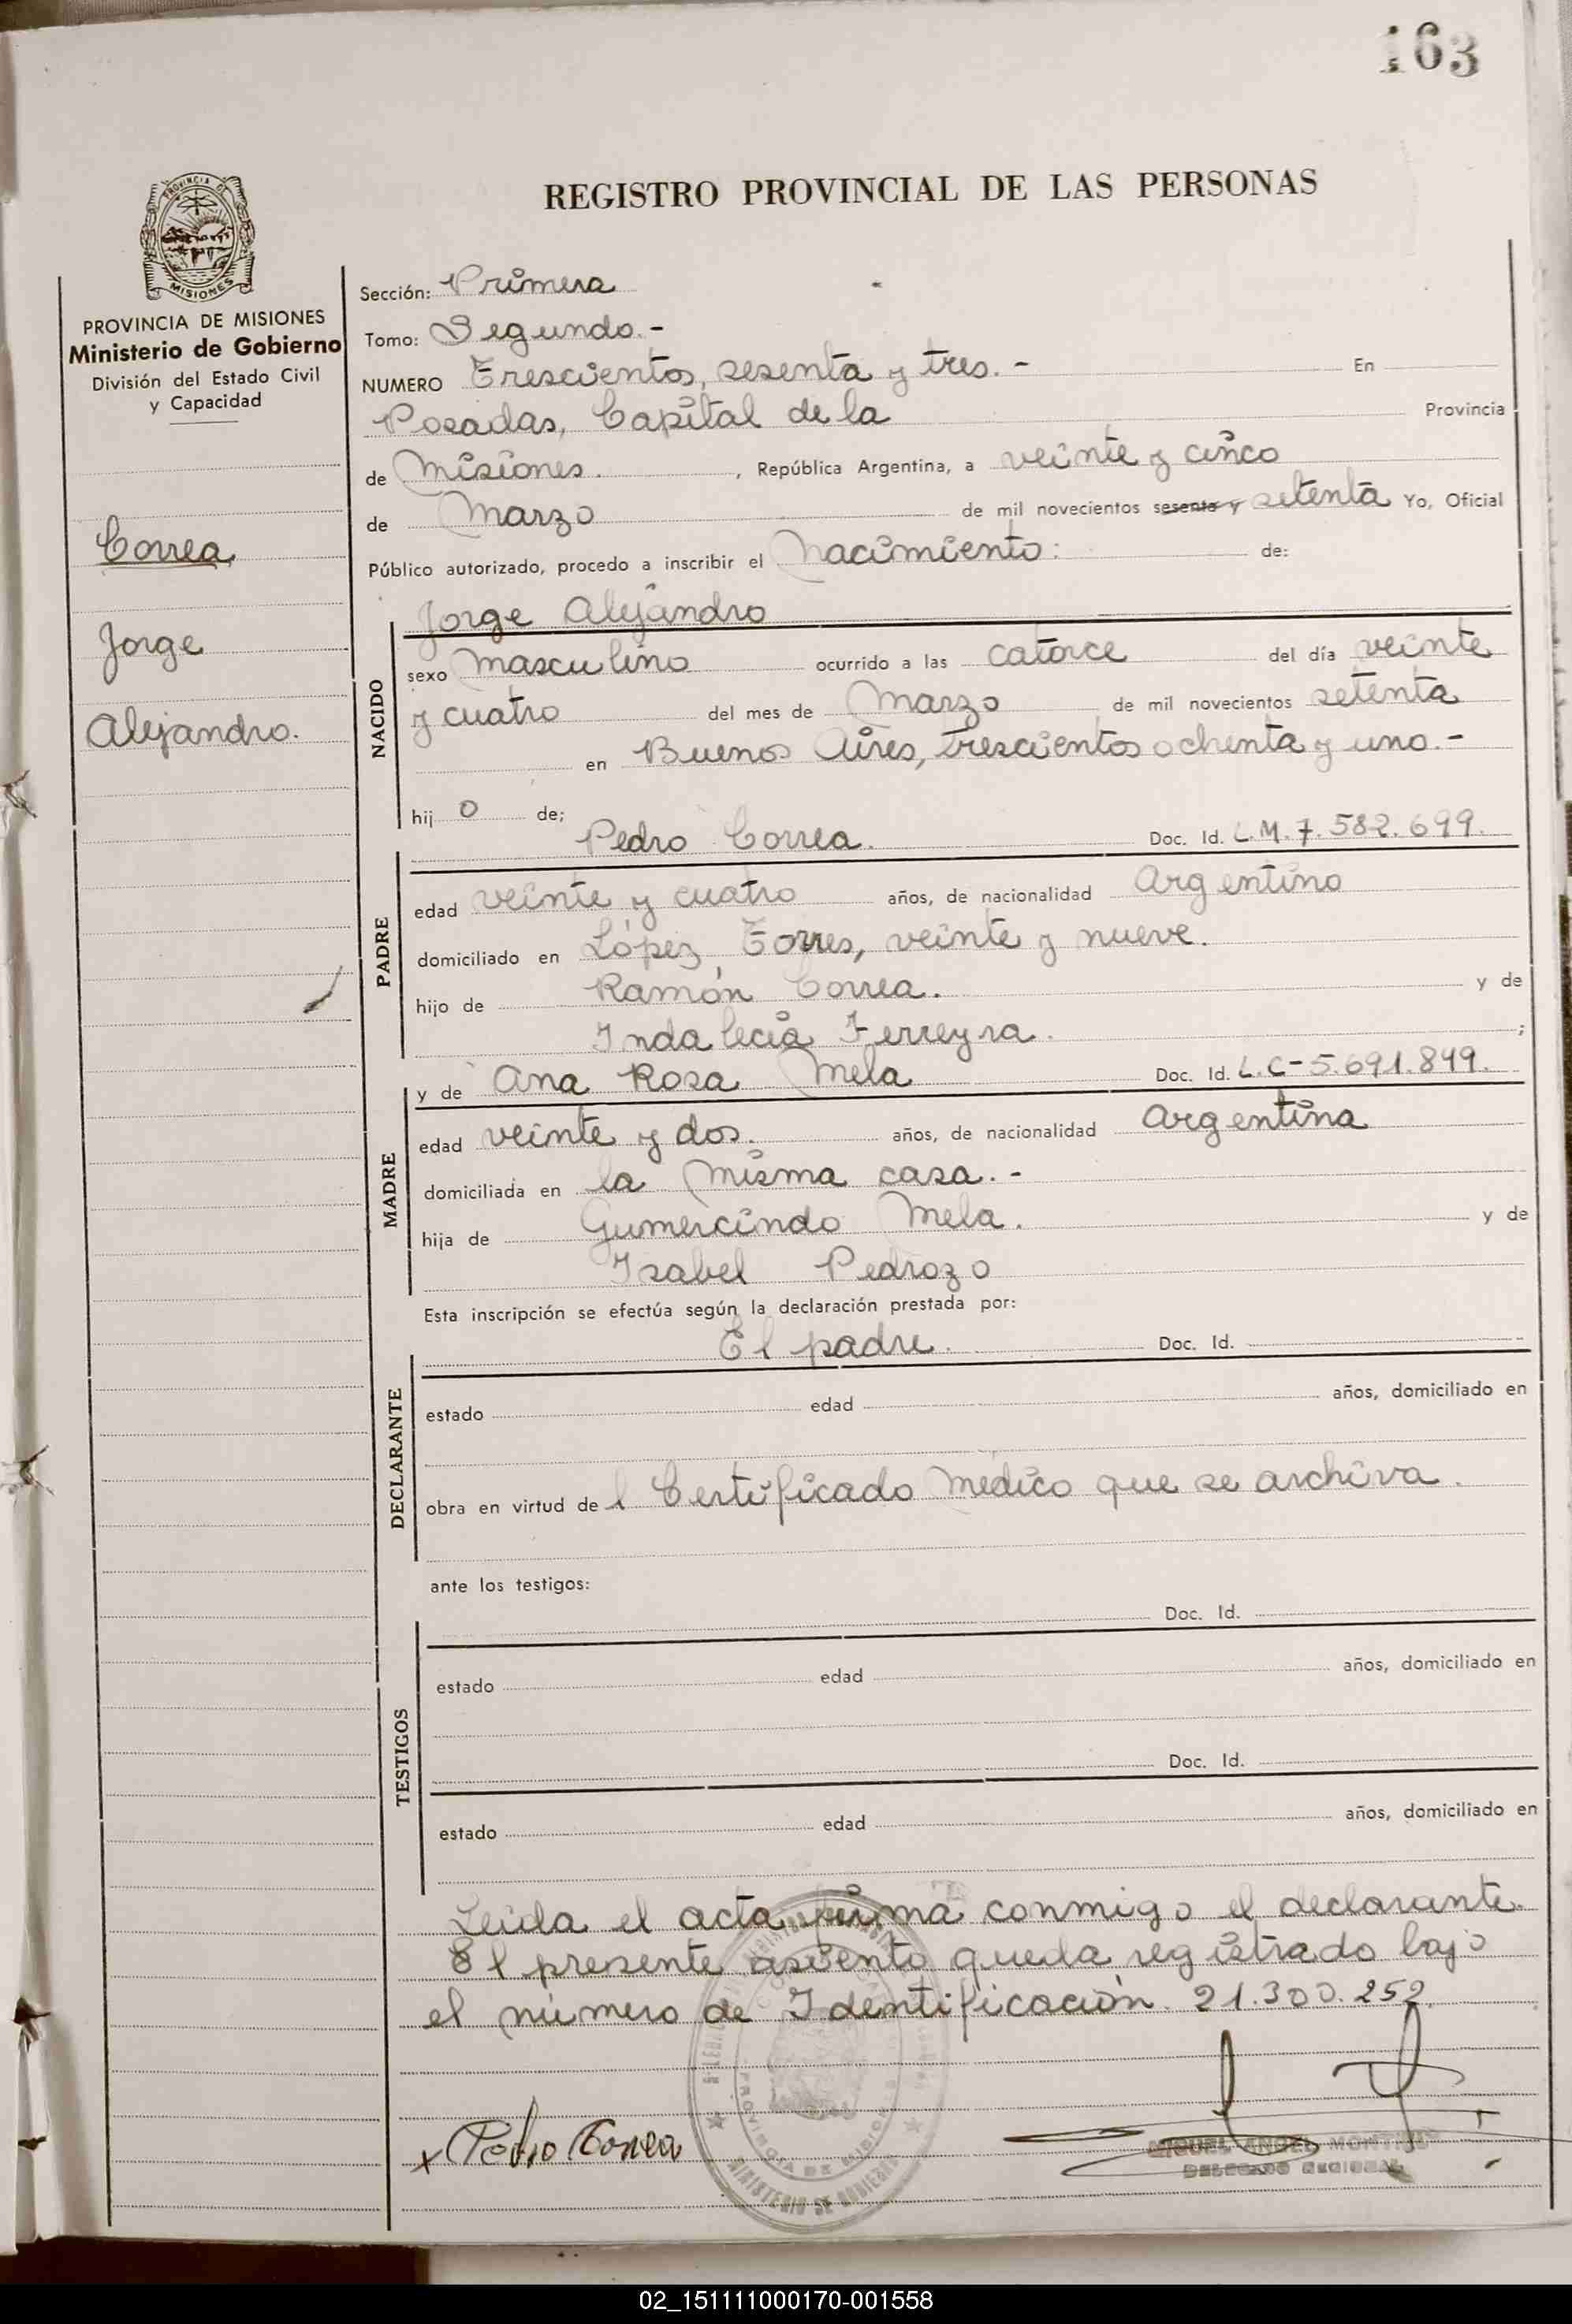 163
REGISTRO PROVINCIAL DE LAS PERSONAS
PROVINCIA DE MISIONES
Ministerio de Gobierno
División del Estado Civil
y Capacidad
Correa
Jorge
Alejandro.
Sección: Primera
Tomo: Segundo.-
NUMERO Trescientos, sesenta y tres.- En
Posadas, Capital de la Provincia
de Misiones. , República Argentina, a veinte y cinco
de Marzo de mil novecientos sesenta y setenta Yo, Oficial
Público autorizado, procedo a inscribir el Nacimiento: de:
NACIDO
Jorge Alejandro
sexo masculino ocurrido a las catorce del día veinte
y cuatro del mes de Marzo de mil novecientos setenta
en Buenos Aires, trescientos ochenta y uno.-
hij o de;
PADRE
Pedro Correa. Doc. Id. L.M.7.582.699.
edad veinte y cuatro años, de nacionalidad Argentino
domiciliado en López Torres, veinte y nueve.
hijo de Ramón Correa. y de
Indalecia Ferreyra. ;
MADRE
y de Ana Rosa Mela Doc. Id. L.C-5.691.849.
edad veinte y dos. años, de nacionalidad Argentina
domiciliada en la misma casa.-
hija de Gumercindo Mela. y de
Isabel Pedrozo
Esta inscripción se efectúa según la declaración prestada por:
DECLARANTE
El padre. Doc. Id.
estado edad años, domiciliado en
obra en virtud de l Certificado Médico que se archiva.
ante los testigos:
TESTIGOS
Doc. Id.
estado edad años, domiciliado en
Doc. Id.
estado edad años, domiciliado en
Leida el acta firma conmigo el declarante.
El presente asiento queda registrado bajo
el número de Identificación. 21.300.252.
x Pedro Correa
MIGUEL ANGEL
DELEGADO REGIONAL
PROVINCIA DE MISIONES
MINISTERIO DE GOBIERNO
02_151111000170-001558